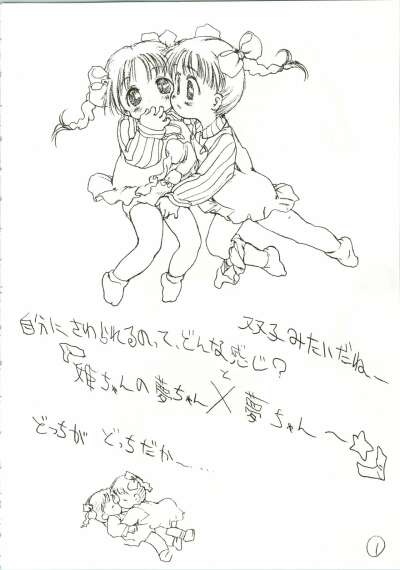 双子みたいだねー
自分にさわられるのって、どんな感じ?
『姫ちゃんの夢ちゃんと×夢ちゃん〜☆』
どっちが どっちだか〜……
1